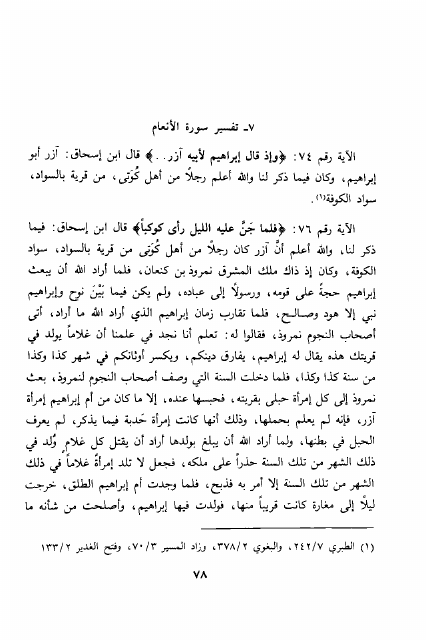 ٧ـ تفسير سورة الأنعام
الآية رقم ٧٤: ﴿وإذ قال إبراهيم لأبيه آزر..﴾ قال ابن إسحاق: آزر أبو
إبراهيم، وكان فيما ذكر لنا والله أعلم رجلاً من أهل كُوَثى، من قرية بالسواد،
سواد الكوفة(١).
الآية رقم ٧٦: ﴿فلما جَنَّ عليه الليل رأى كوكباً﴾ قال ابن إسحاق: فيما
ذكر لنا، والله أعلم أنَّ آزر كان رجلاً من أهل كُوَثى من قرية بالسواد، سواد
الكوفة، وكان إذ ذاك ملك المشرق نمروذ بن كنعان، فلما أراد الله أن يبعث
إبراهيم حجةً على قومه، ورسولاً إلى عباده، ولم يكن فيما بَيْنَ نوح وإبراهيم
نبي إلا هود وصالح، فلما تقارب زمان إبراهيم الذي أراد الله ما أراد، أتى
أصحاب النجوم نمروذ، فقالوا له: تعلم أنا نجد في علمنا أن غلاماً يولد في
قريتك هذه يقال له إبراهيم، يفارق دينكم، ويكسر أوثانكم في شهر كذا وكذا
من سنة كذا وكذا، فلما دخلت السنة التي وصف أصحاب النجوم لنمروذ، بعث
نمروذ إلى كل إمرأة حبلى بقريته، فحبسها عنده، إلا ما كان من أم إبراهيم إمرأة
آزر، فإنه لم يعلم بحملها، وذلك أنها كانت إمرأة حَدبة فيما يذكر، لم يعرف
الحبل في بطنها، ولما أراد الله أن يبلغ بولدها أراد أن يقتل كل غلام وُلد في
ذلك الشهر من تلك السنة حذراً على ملكه، فجعل لا تلد إمرأةً غلاماً في ذلك
الشهر من تلك السنة إلا أمر به فذبح، فلما وجدت أم إبراهيم الطلق، خرجت
ليلاً إلى مغارة كانت قريباً منها، فولدت فيها إبراهيم، وأصلحت من شأنه ما
(١) الطبري ٢٤٢/٧، والبغوي ٣٧٨/٢، وزاد المسير ٧٠/٣، وفتح الغدير ١٣٣/٢
٧٨